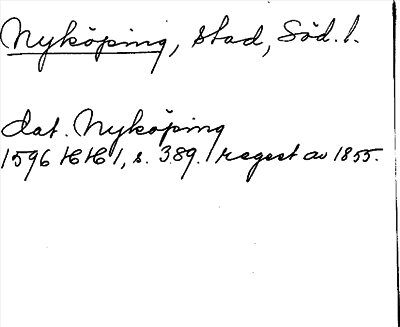 Nyköping, stad, Söd. l.
dat. Nyköping
1596 HH 1, s. 389. regest av 1855.